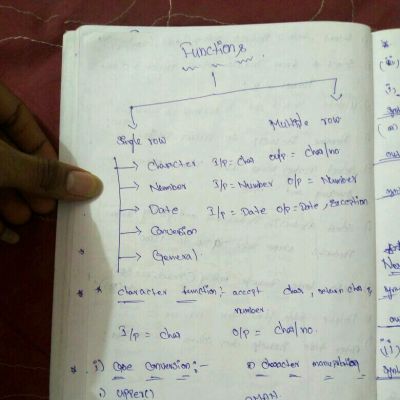 Functions
Single row
Multiple row
Character I/p = char o/p = char/no
Number I/p = Number o/p = Number
Date I/p = Date o/p = Date, Exception
Conversion
General
* * character function:- accept char, return char &
number
I/p = char o/p = char/no.
* * i) Case Conversion:- ii) character manipulation
i) UPPER()